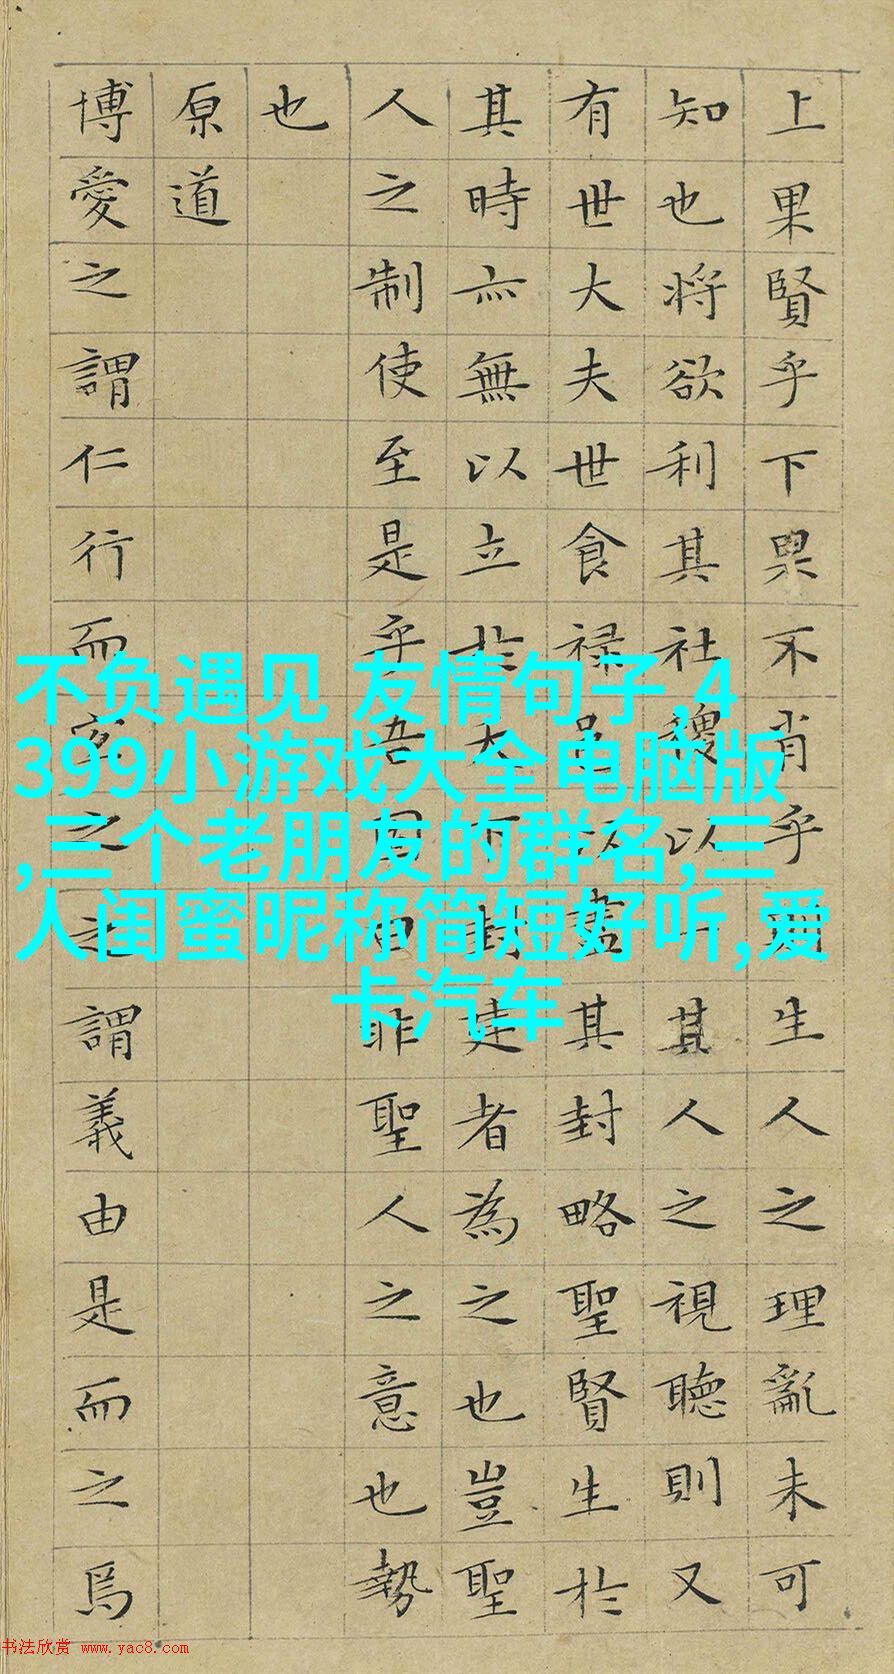 上果賢乎下果不肖乎生人之理亂未可
知也将欲利其社稷以一其人之視聴則又
有世大夫世食禄邑以盡其封略聖賢生於
其時亦無以立於天下封建者為之也豈聖
人之制使至是乎吾固曰非聖人之意也勢
也
原道
博愛之謂仁行而宜之之謂義由是而之焉
不负遇见 友情句子,4
399小游戏大全电脑版
,三个老朋友的群名,三
人闺蜜昵称简短好听,爱
卡汽车
书法欣赏 www.yac8.com